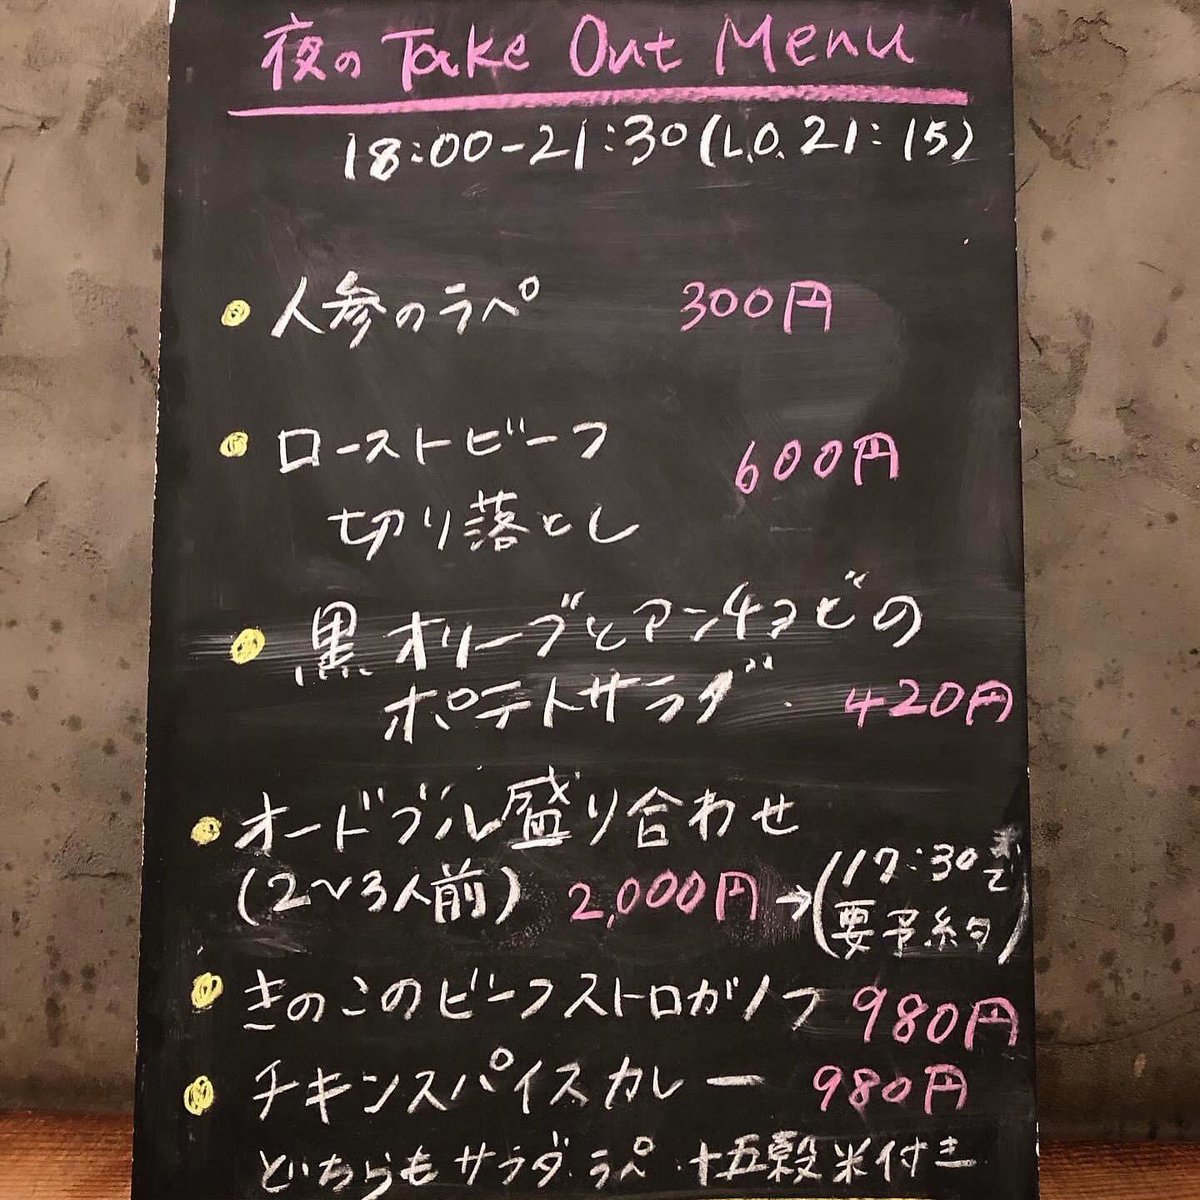 夜の Take Out Menu
18:00-21:30(L.O. 21:15)
人参のラペ 300円
ローストビーフ 600円
切り落とし
黒オリーブとアンチョビの
ポテトサラダ 420円
オードブル盛り合わせ
(2~3人前) 2,000円→(17:30まで
要予約)
きのこのビーフストロガノフ 980円
チキンスパイスカレー 980円
どちらもサラダ.ラペ.十五穀米付き